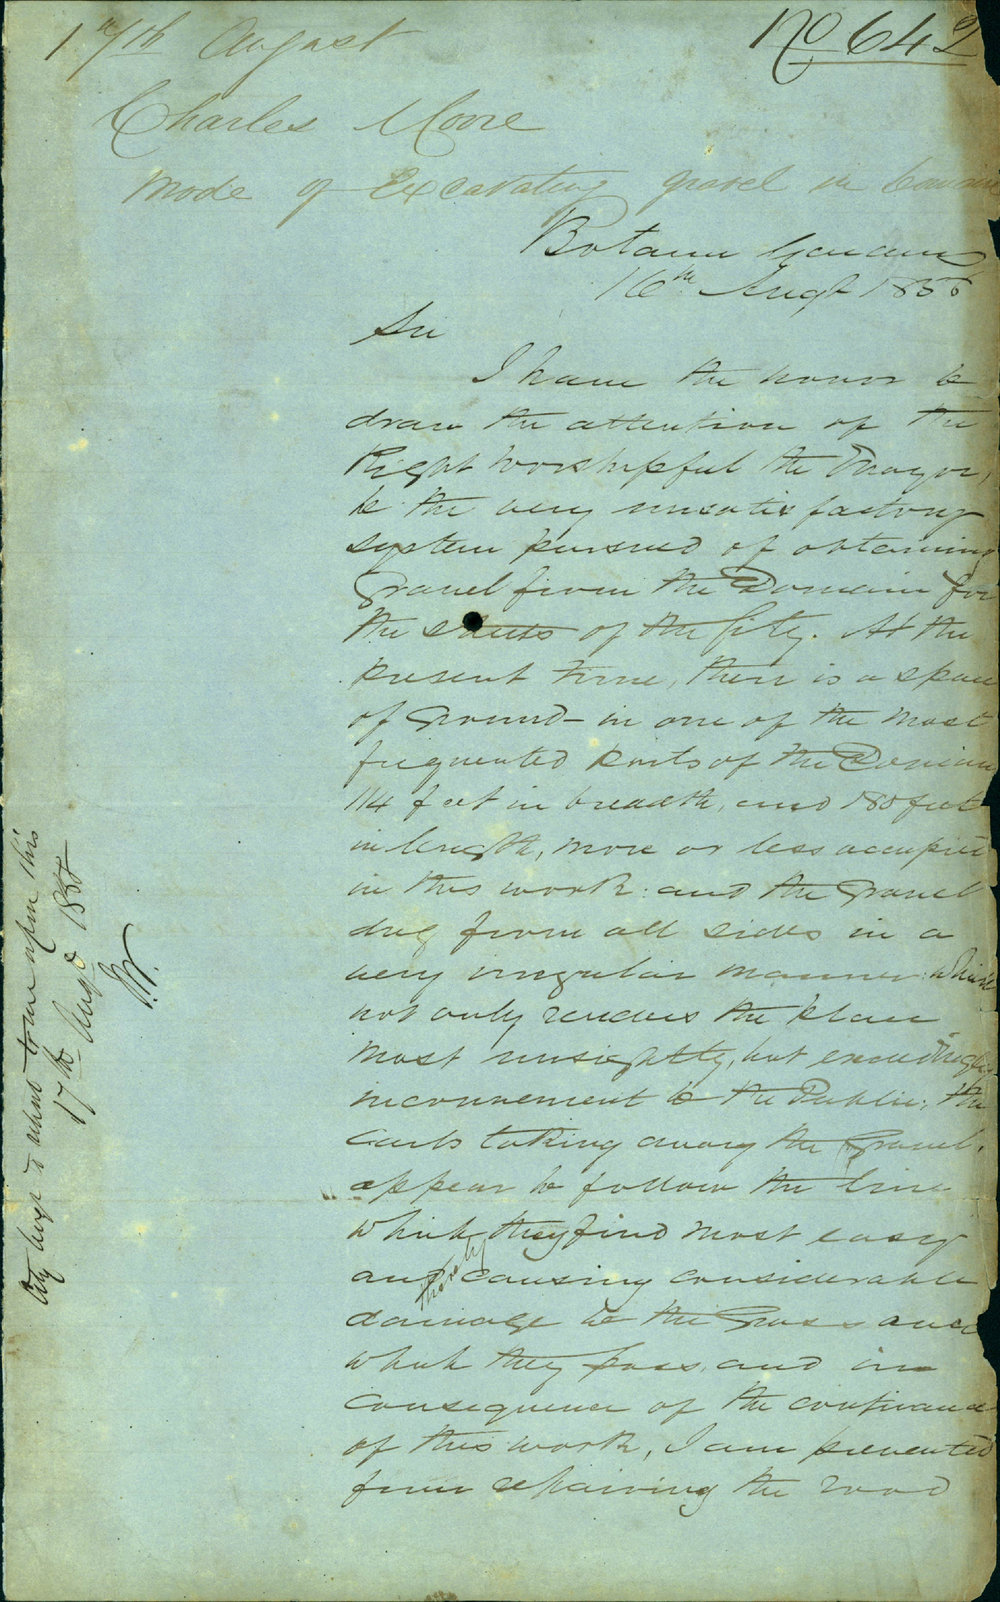 17th August
No 642
Charles Moore
Mode of Excavating gravel in
Botanic Gardens
16th Augt 1858
Sir
I have the honor to
draw the attention of the
Right Worshipful the Mayor,
to the very unsatisfactory
system pursued of obtaining
Gravel from the Domain for
the streets of the City. At the
present time, there is a space
of ground in one of the most
frequented parts of the Domain
114 feet in breadth, and 180 feet
in length, more or less occupied
in this work: and the Gravel
dug from all sides in a
very irregular manner: which
not only renders the place
most unsightly, but exceedingly
inconvenient to the Public; the
Carts taking away the Gravel,
appear to follow the line
which they find most easy
and thereby causing considerable
damage to the Grass over
which they pass, and in
consequence of the continuance
of this work, I am prevented
from repairing the road
City Surv
upon this
17th Augt 1858